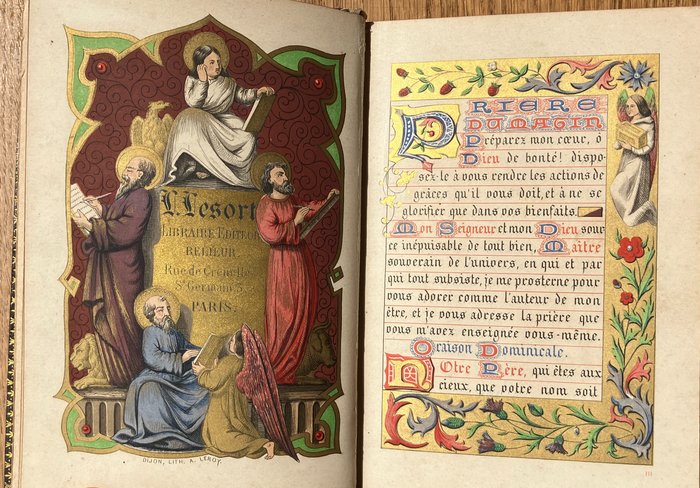 L. Lesort
LIBRAIRE EDITEUR
RELIEUR
Rue de Grenelle
St Germain 3.
PARIS.
DIJON, LITH. A. LEROY.
PRIERE
DU MATIN
Préparez mon cœur, ô
Dieu de bonté! dispo-
sez-le à vous rendre les actions de
grâces qu'il vous doit, et à ne se
glorifier que dans vos bienfaits.
Mon Seigneur et mon Dieu, sour
ce inépuisable de tout bien, Maître
souverain de l'univers, en qui et par
qui tout subsiste, je me prosterne pour
vous adorer comme l'auteur de mon
être, et je vous adresse la prière que
vous m'avez enseignée vous-même.
Oraison Dominicale.
Notre Père, qui êtes aux
cieux, que votre nom soit
III